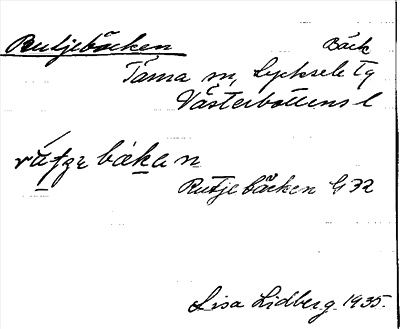 Rutjebäcken Bäck
Tärna sn, Lycksele tg
Västerbottens l
Rutjebäcken G 32
Lisa Lidberg 1935.